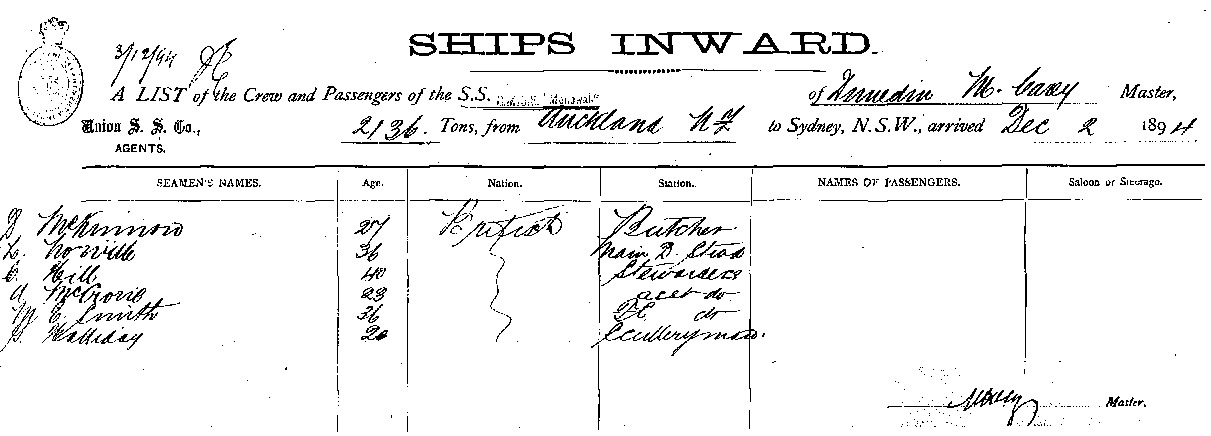 SHIPS INWARD.
3/12/94
A LIST of the Crew and Passengers of the S.S. of Dunedin M. Carey Master,
Union S. S. Co., 2136. Tons, from Auckland NZ to Sydney, N.S.W., arrived Dec 2 1894
AGENTS.
SEAMEN'S NAMES. Age. Nation. Station. NAMES OF PASSENGERS. Saloon or Steerage.
McKinnon 27 British Butcher
L. Norville 36 Main D. Stwd
C. Hill 40 Stewardess
A McCrorie 23 asst do
M C Smith 36 do
J. Halliday 20 Sculleryman.
Master.